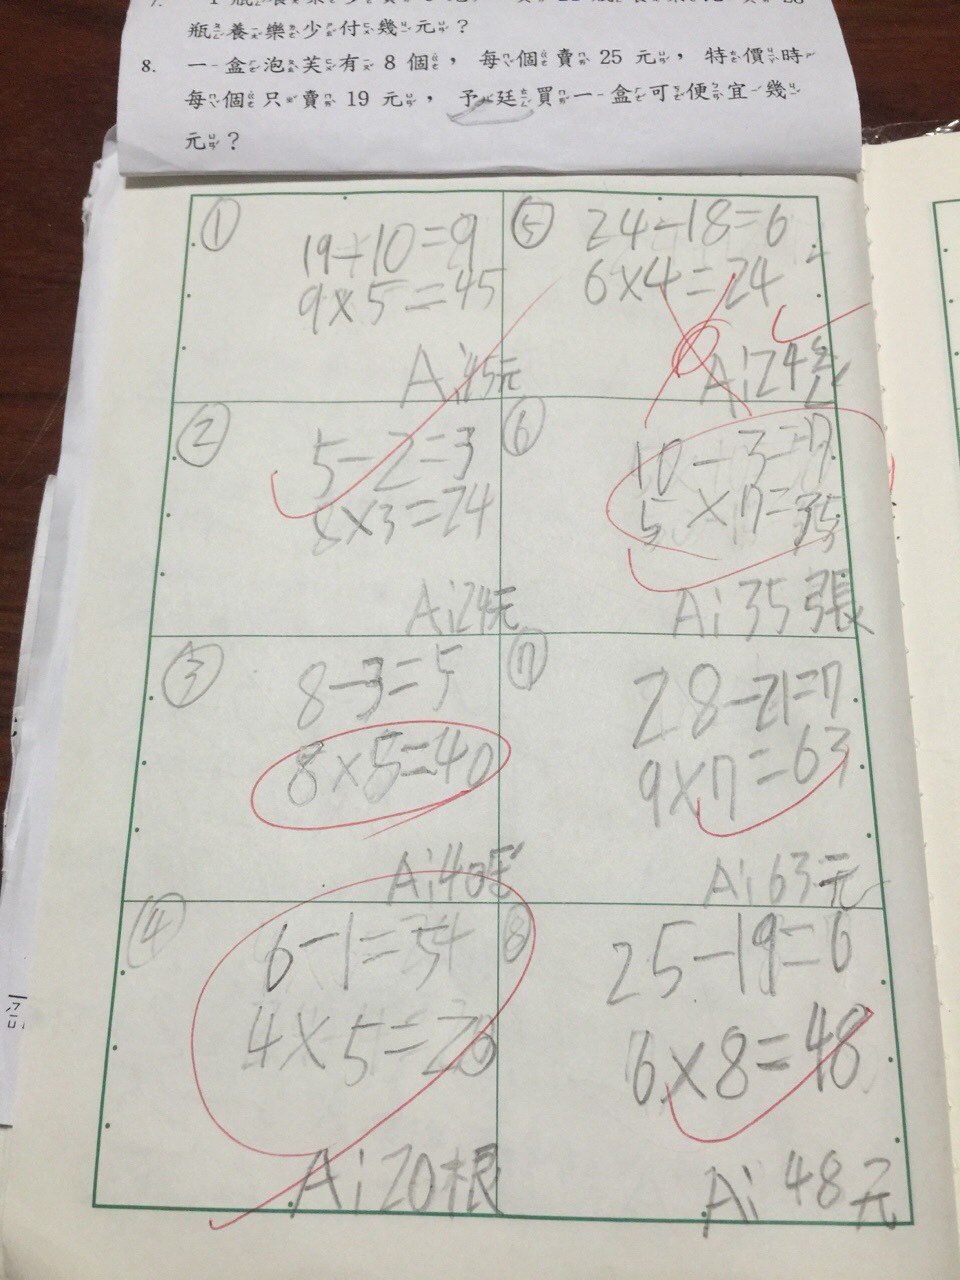 瓶養樂多少付幾元?
8. 一盒泡芙有8個,每個賣25元,特價時
每個只賣19元,予廷買一盒可便宜幾
元?
①
19-10=9
9×5=45
A:45元
②
5-2=3
8×3=24
A:24元
③
8-3=5
8×5=40
A:40元
④
6-1=5
4×5=20
A:20根
⑤
24-18=6
6×4=24
A:24
⑥
10-3=7
5×7=35
A:35張
⑦
28-21=7
9×7=63
A:63元
⑧
25-19=6
6×8=48
A:48元